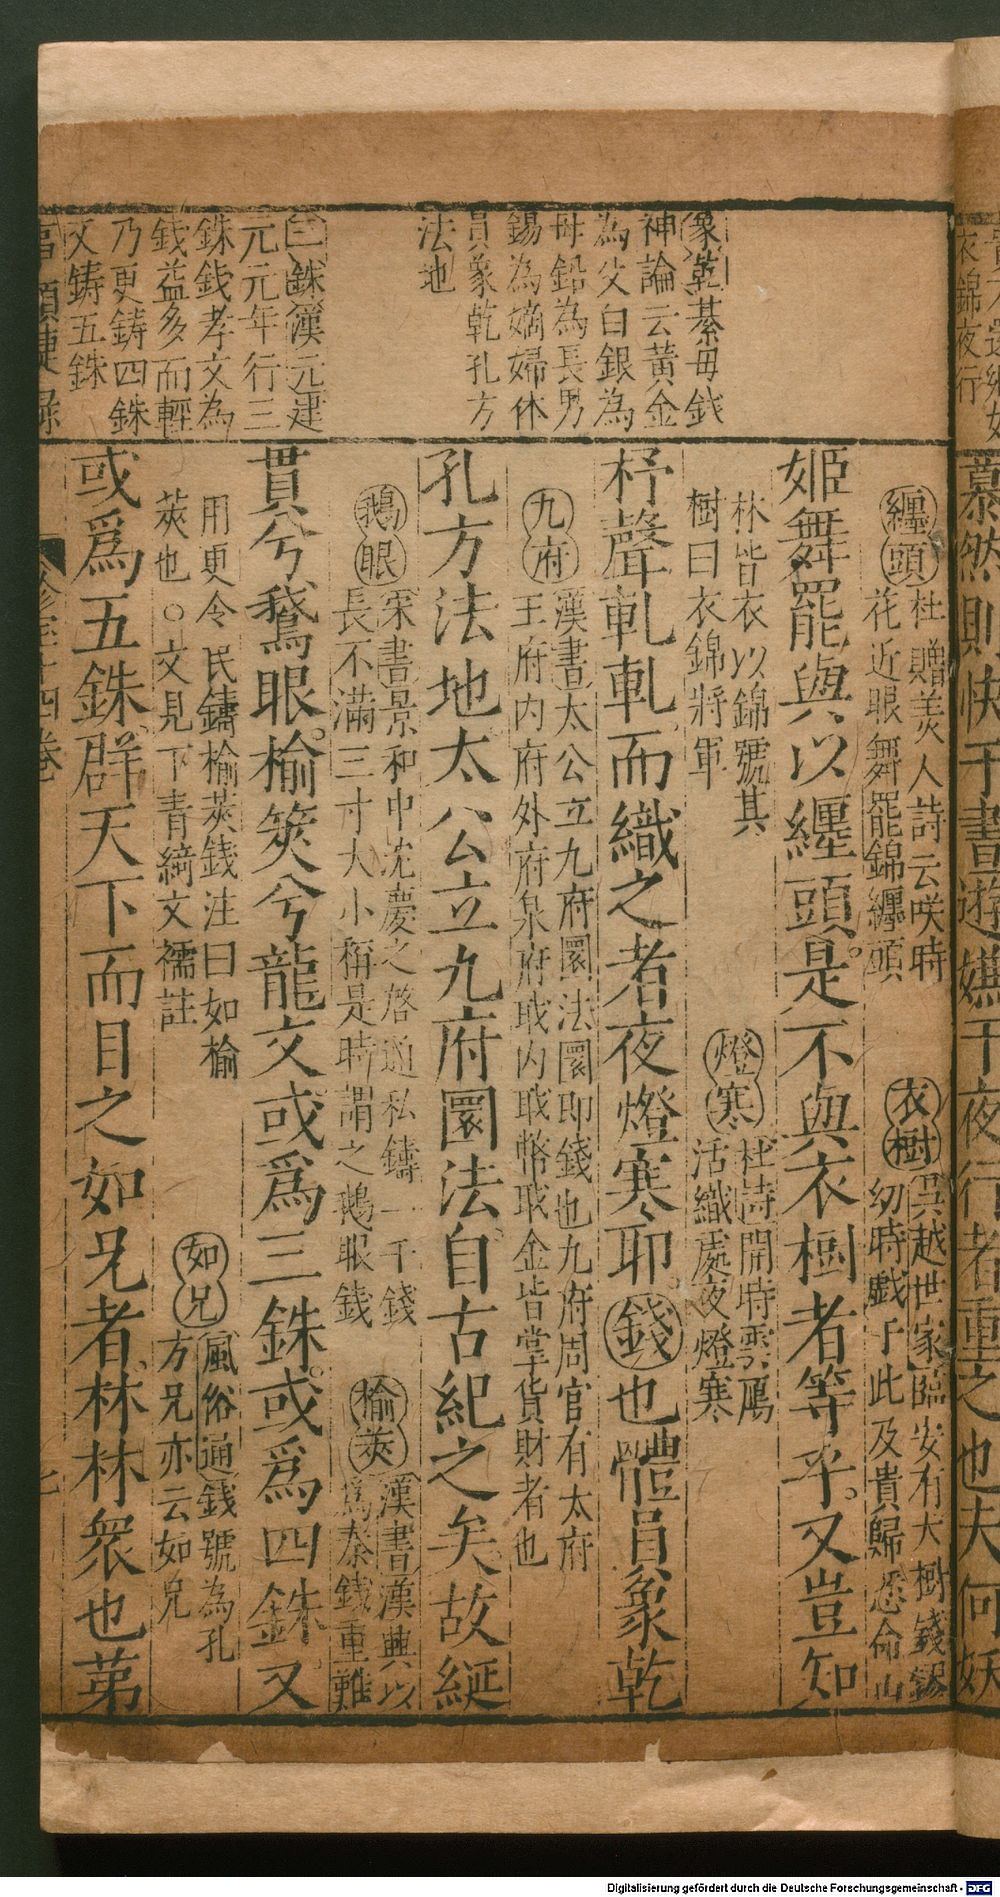 慕然則快于晝遊嫣于夜行者重之也夫何妖
纏頭 杜贈美人詩云咲時
花近眼舞罷錦纏頭
衣樹 吳越世家臨安有大樹錢鏐
幼時戲于此及貴歸悉命山
姬舞罷與以纏頭是不與衣樹者等乎又豈知
林皆衣以錦號其
樹曰衣錦將軍
燈寒 杜詩開時雲鴈
活織處夜燈寒
杼聲軋軋而織之者夜燈寒耶錢也體員象乾
九府 漢書太公立九府圜法圜即錢也九府周官有太府
王府内府外府泉府職内職幣職金皆掌貨財者也
孔方法地太公立九府圜法自古紀之矣故綖
鵝眼 宋書景和中沈慶之啓通私鑄一千錢
長不滿三寸大小稱是時謂之鵝眼錢
榆莢 漢書漢興以
爲秦錢重難
貫兮鵝眼榆筴兮龍文或爲三銖或爲四銖又
用更令民鑄榆莢錢注曰如榆
莢也○文見下青綺文襦註
如兄 風俗通錢號為孔
方兄亦云如兄
或爲五銖群天下而目之如兄者林林衆也第
象乾 綦毋錢
神論云黃金
為父白銀為
母鉛為長男
錫為嫡婦休
員象乾孔方
法地
三銖 漢元建
元元年行三
銖錢孝文為
錢益多而輕
乃更鑄四銖
又鑄五銖
十四卷
七
Digitalisierung gefördert durch die Deutsche Forschungsgemeinschaft - DFG